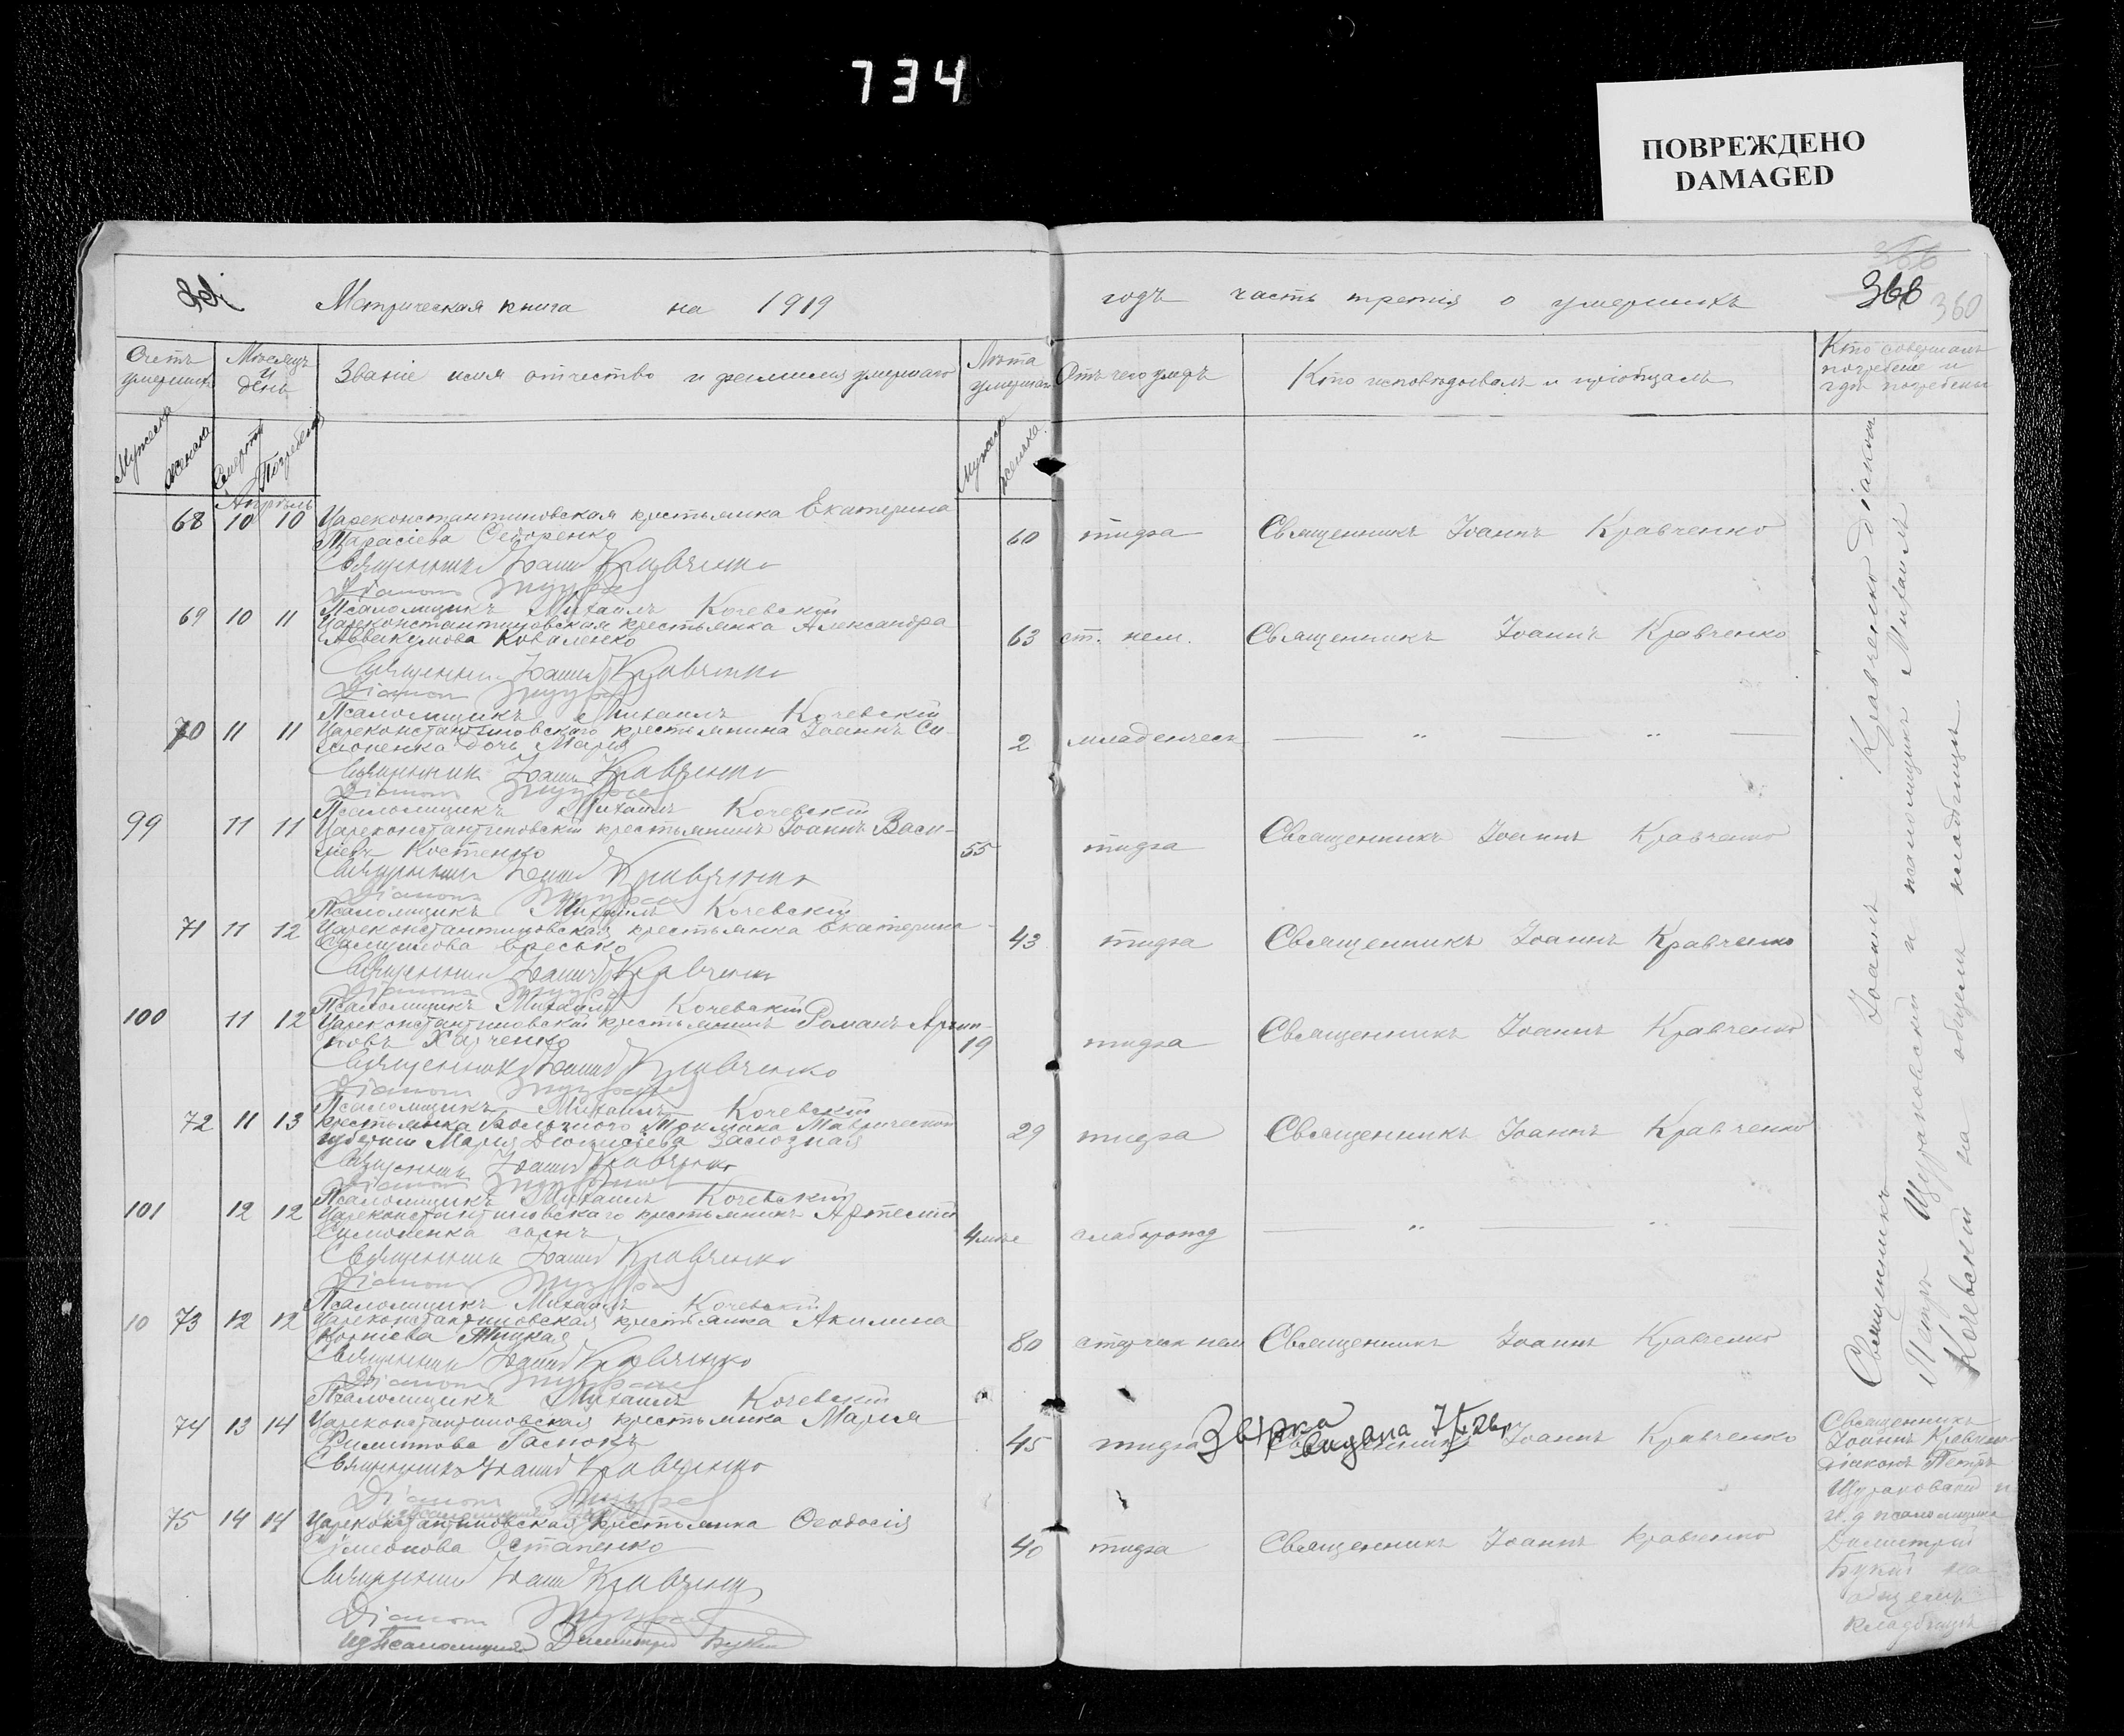 734
ПОВРЕЖДЕНО
DAMAGED
Метрическая книга на 1919 годъ часть третія о умершихъ
368 360
Счетъ умершихъ
Мѣсяцъ и день
Званіе имя отчество и фамилия умершаго
Лѣта умершаго
Отъ чего умеръ
Кто исповѣдывалъ и пріобщалъ
Кто совершалъ погребеніе и гдѣ погребены
Мужеска
женска
Смерти
Погребенія
Мужеска
женска
Апрѣль
68 10 10 Цареконстантиновская крестьянка Екатерина
Тарасіева Сидоренко 60 тифа Священникъ Іоаннъ Кравченко
Священникъ Іоаннъ Кравченко
Діаконъ
Псаломщикъ Михаилъ Кочевскій
69 10 11 Цареконстантиновская крестьянка Александра
Аввакумова Коваленко 63 ст. нем. Священникъ Іоаннъ Кравченко
Священникъ Іоаннъ Кравченко
Діаконъ
Псаломщикъ Михаилъ Кочевскій
70 11 11 Цареконстантиновского крестьянина Іоаннъ Си-
моненка дочь Марія 2 младенческ — " — " —
Священникъ Іоаннъ Кравченко
Діаконъ
Псаломщикъ Михаилъ Кочевскій
99 11 11 Цареконстантиновскій крестьянинъ Іоаннъ Васи-
ліевъ Костенко 55 тифа Священникъ Іоаннъ Кравченко
Священникъ Іоаннъ Кравченко
Діаконъ
Псаломщикъ Михаилъ Кочевскій
71 11 12 Цареконстантиновская крестьянка Екатерина
Ересько 43 тифа Священникъ Іоаннъ Кравченко
Священникъ Іоаннъ Кравченко
Діаконъ
Псаломщикъ Михаилъ Кочевскій
100 11 12 Цареконстантиновскій крестьянинъ Романъ Архип-
повъ Харченко 19 тифа Священникъ Іоаннъ Кравченко
Священникъ Іоаннъ Кравченко
Діаконъ
Псаломщикъ Михаилъ Кочевскій
72 11 13 крестьянка Токмака Таврической
губерніи Марія Діонисіева 29 тифа Священникъ Іоаннъ Кравченко
Священникъ Іоаннъ Кравченко
Діаконъ
Псаломщикъ Михаилъ Кочевскій
101 12 12 Цареконстантиновскаго крестьянинъ
Симоненка сынъ слаборожд — " — " —
Священникъ Іоаннъ Кравченко
Діаконъ
Псаломщикъ Михаилъ Кочевскій
10 73 12 12 Цареконстантиновская крестьянка Акилина
Корніева 80 старческ нем Священникъ Іоаннъ Кравченко
Священникъ Іоаннъ Кравченко
Діаконъ
Псаломщикъ Михаилъ Кочевскій
74 13 14 Цареконстантиновская крестьянка Марія
Филиппова 45 тифа Священникъ Іоаннъ Кравченко
выдана
Священникъ Іоаннъ Кравченко
Діаконъ
75 14 14 Цареконстантиновская крестьянка Феодосія
Симеонова Остапенко 40 тифа Священникъ Іоаннъ Кравченко
Священникъ Іоаннъ Кравченко
Діаконъ
Псаломщика Димитрій Букій
Священникъ Іоаннъ Кравченко діаконъ
Петръ Щураковскій и псаломщикъ Михаилъ
Кочевскій на общемъ кладбищѣ
Священникъ
Іоаннъ Кравченко
діаконъ Петръ
Щураковскій и
и. д. псаломщика
Димитрій
Букій на
общемъ
кладбищѣ